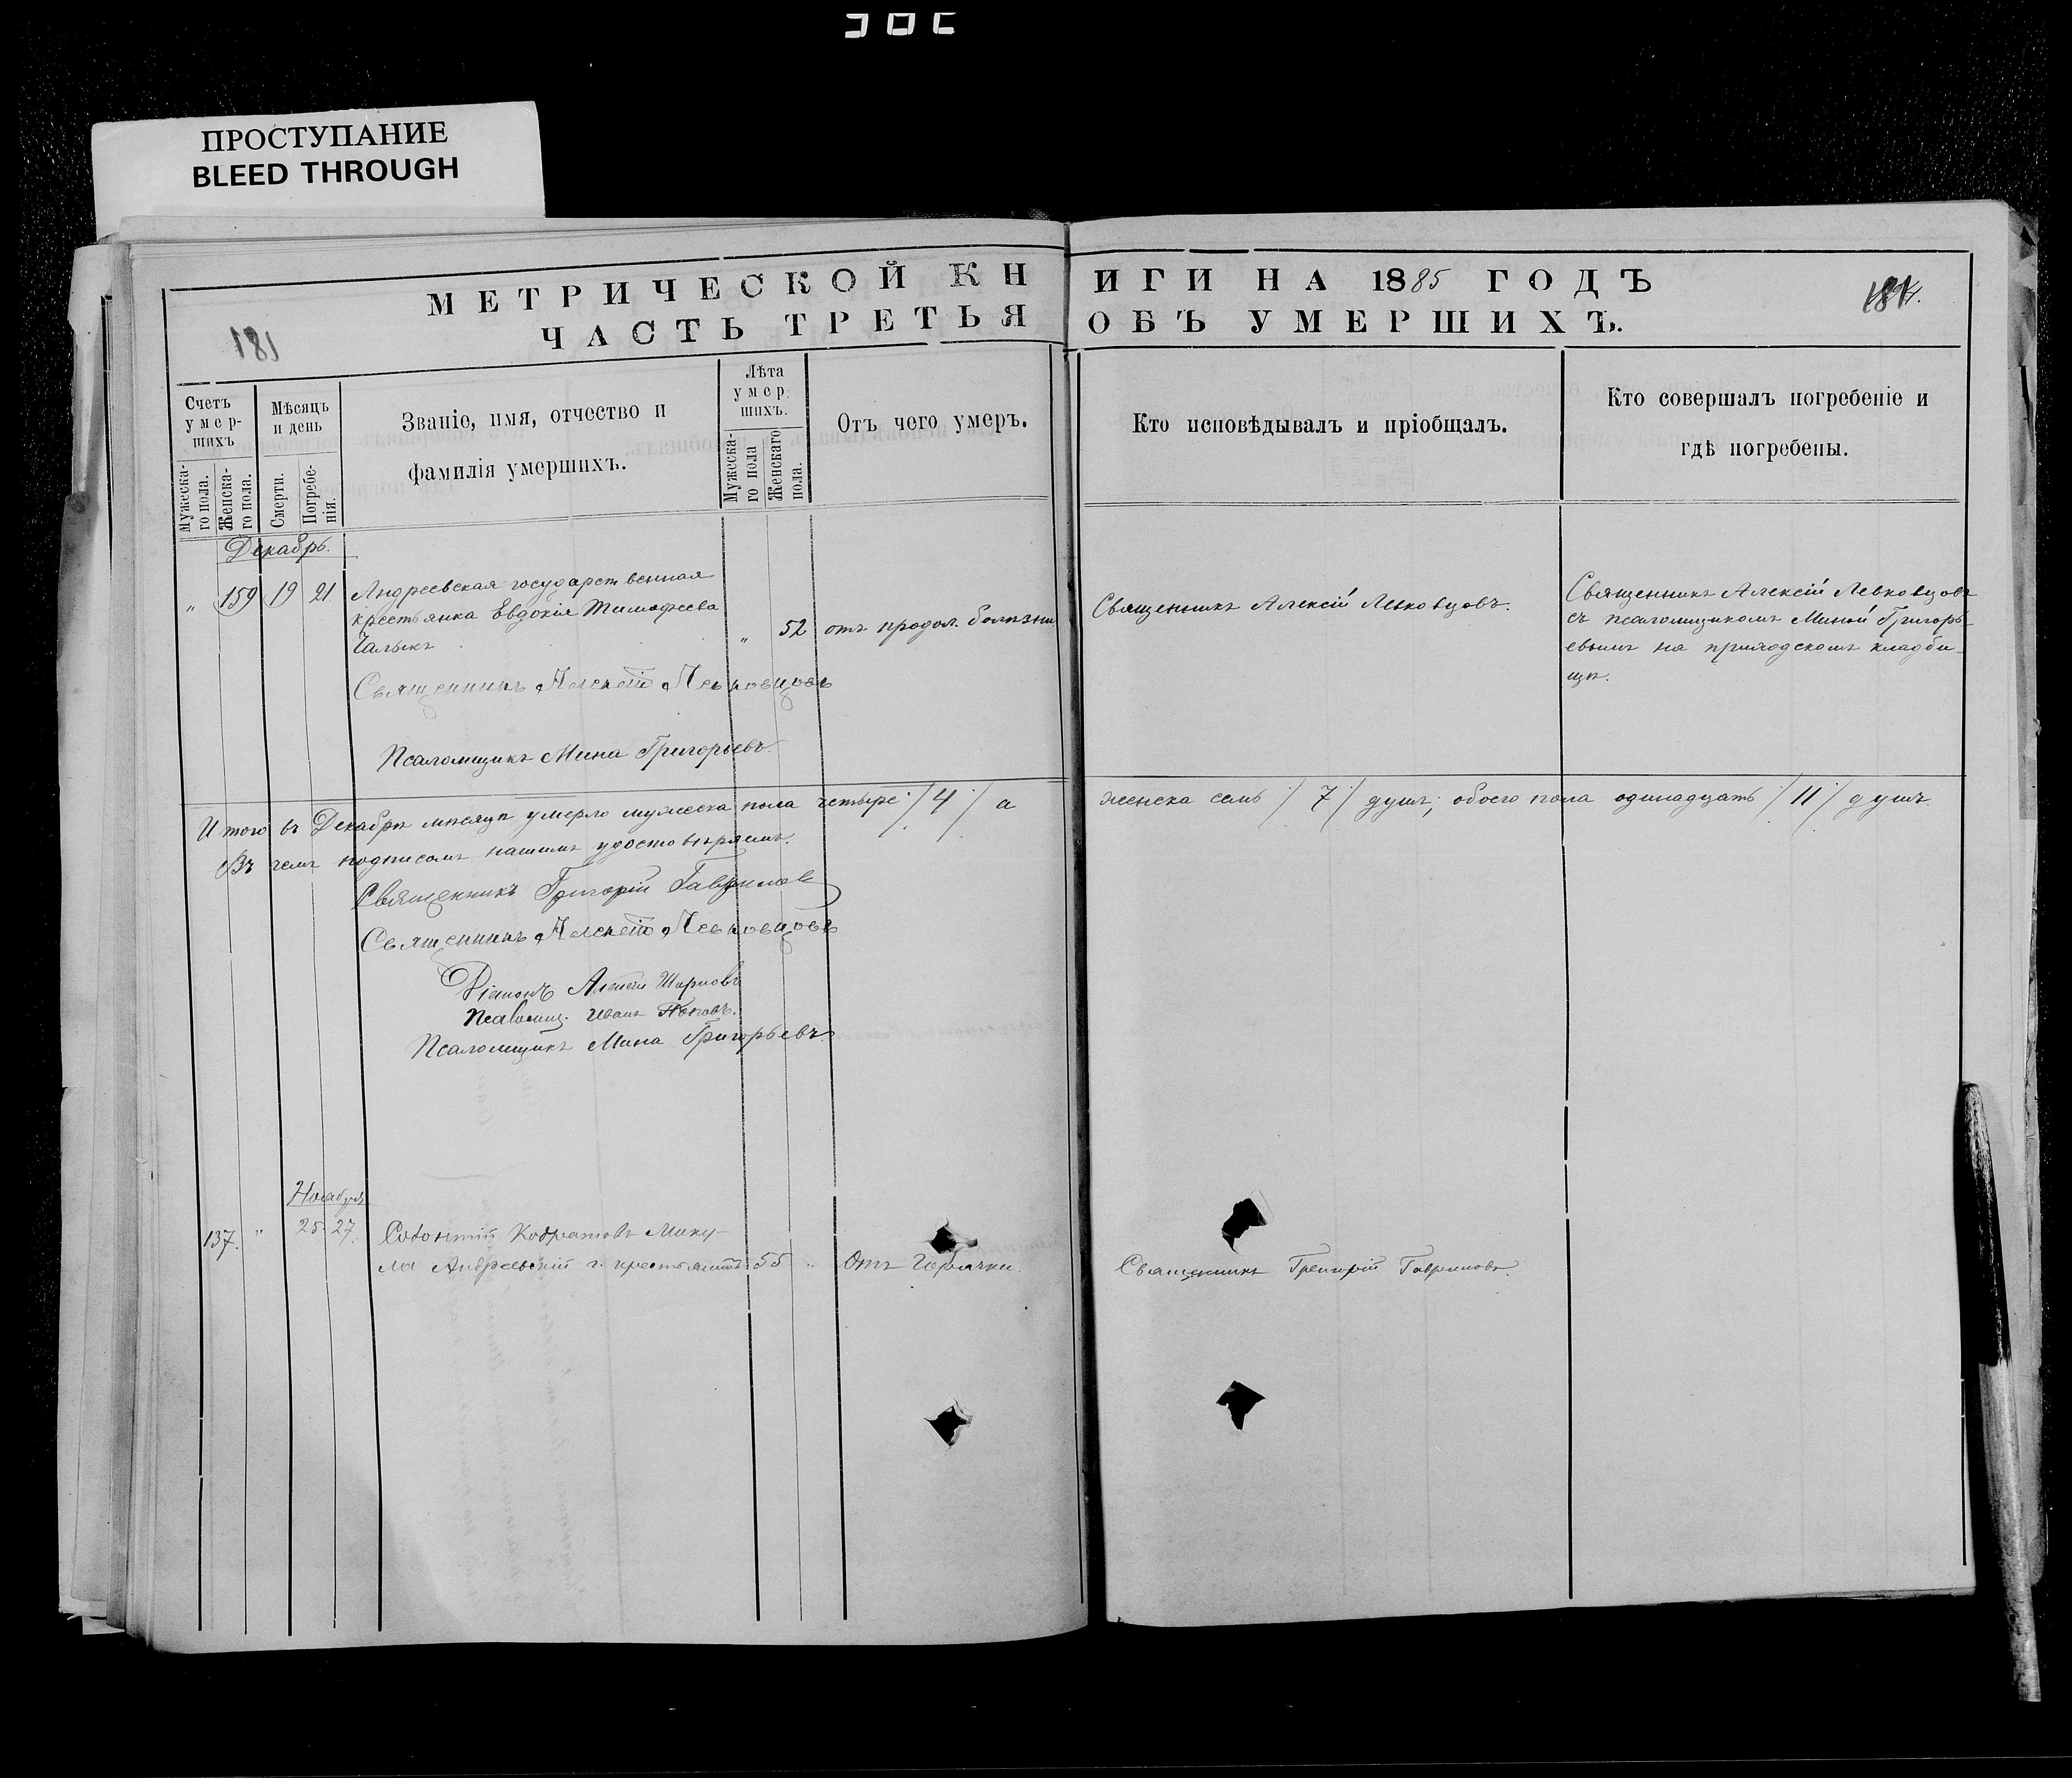 ПРОСТУПАНИЕ
BLEED THROUGH
МЕТРИЧЕСКОЙ КНИГИ НА 1885 ГОДЪ
181
ЧАСТЬ ТРЕТЬЯ ОБЪ УМЕРШИХЪ.
Счетъ умер-
шихъ
Мужеска-
го пола.
Женска-
го пола.
Мѣсяцъ
и день
Смерти.
Погребе-
нія.
Званіе, имя, отчество и
фамилія умершихъ.
Лѣта
умер-
шихъ.
Мужеска-
го пола
Женскаго
пола.
Отъ чего умеръ.
Кто исповѣдывалъ и пріобщалъ.
Кто совершалъ погребеніе и
гдѣ погребены.
Декабрь.
" 159 19 21 Андреевская государственная
крестьянка Евдокія Тимофеева
Чалыкъ " 52 отъ продол. болѣзни
Священникъ Алексій Левковцовъ.
Священникъ Алексій Левковцовъ
съ псаломщикомъ Миной Григорь-
евымъ на приходскомъ кладби-
щѣ.
Священникъ Алексій Левковцовъ
Псаломщикъ Мина Григорьевъ
Итого въ Декабрѣ мѣсяцѣ умерло мужеска пола четыре /4/ а женска семь /7/ душъ; обоего пола одинадцать /11/ душъ
Въ чемъ подписомъ нашимъ удостовѣряемъ.
Священникъ Григорій Гавриловъ
Священникъ Алексій Левковцовъ
Діаконъ Алексій
Псаломщ. Иванъ
Псаломщикъ Мина Григорьевъ
Ноября
137. " 25 27. Кодратовъ Мику-
ла Андреевскій г. крестьянинъ 55 " Отъ Горячки
Священникъ Григорій Гавриловъ.